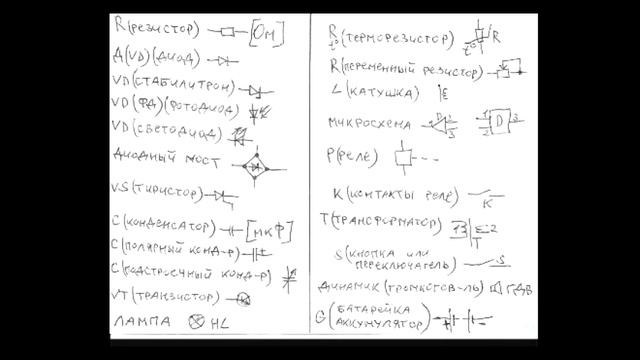 R(резистор) [Ом]
Д(VD)(диод)
VD(стабилитрон)
VD(ФД)(фотодиод)
VD(светодиод)
диодный мост
VS(тиристор)
C(конденсатор) [мкФ]
C(полярный конд-р)
C(подстроечный конд-р)
VT(транзистор)
лампа HL
R t° (терморезистор) R t°
R(переменный резистор)
L(катушка)
микросхема D
P(реле)
K(контакты реле) K
T(трансформатор) T
S(кнопка или
переключатель) S
динамик(громкогов-ль) ГДВ
G(батарейка
аккумулятор)